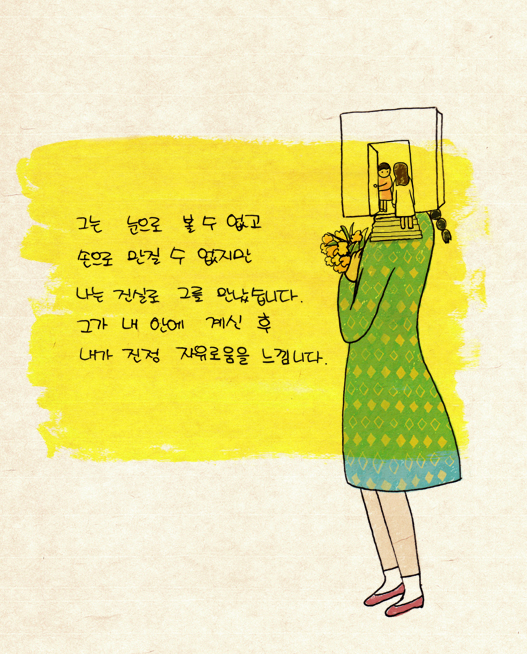 그는 눈으로 볼 수 없고
손으로 만질 수 없지만
나는 진실로 그를 만났습니다.
그가 내 안에 계신 후
내가 진정 자유로움을 느낍니다.